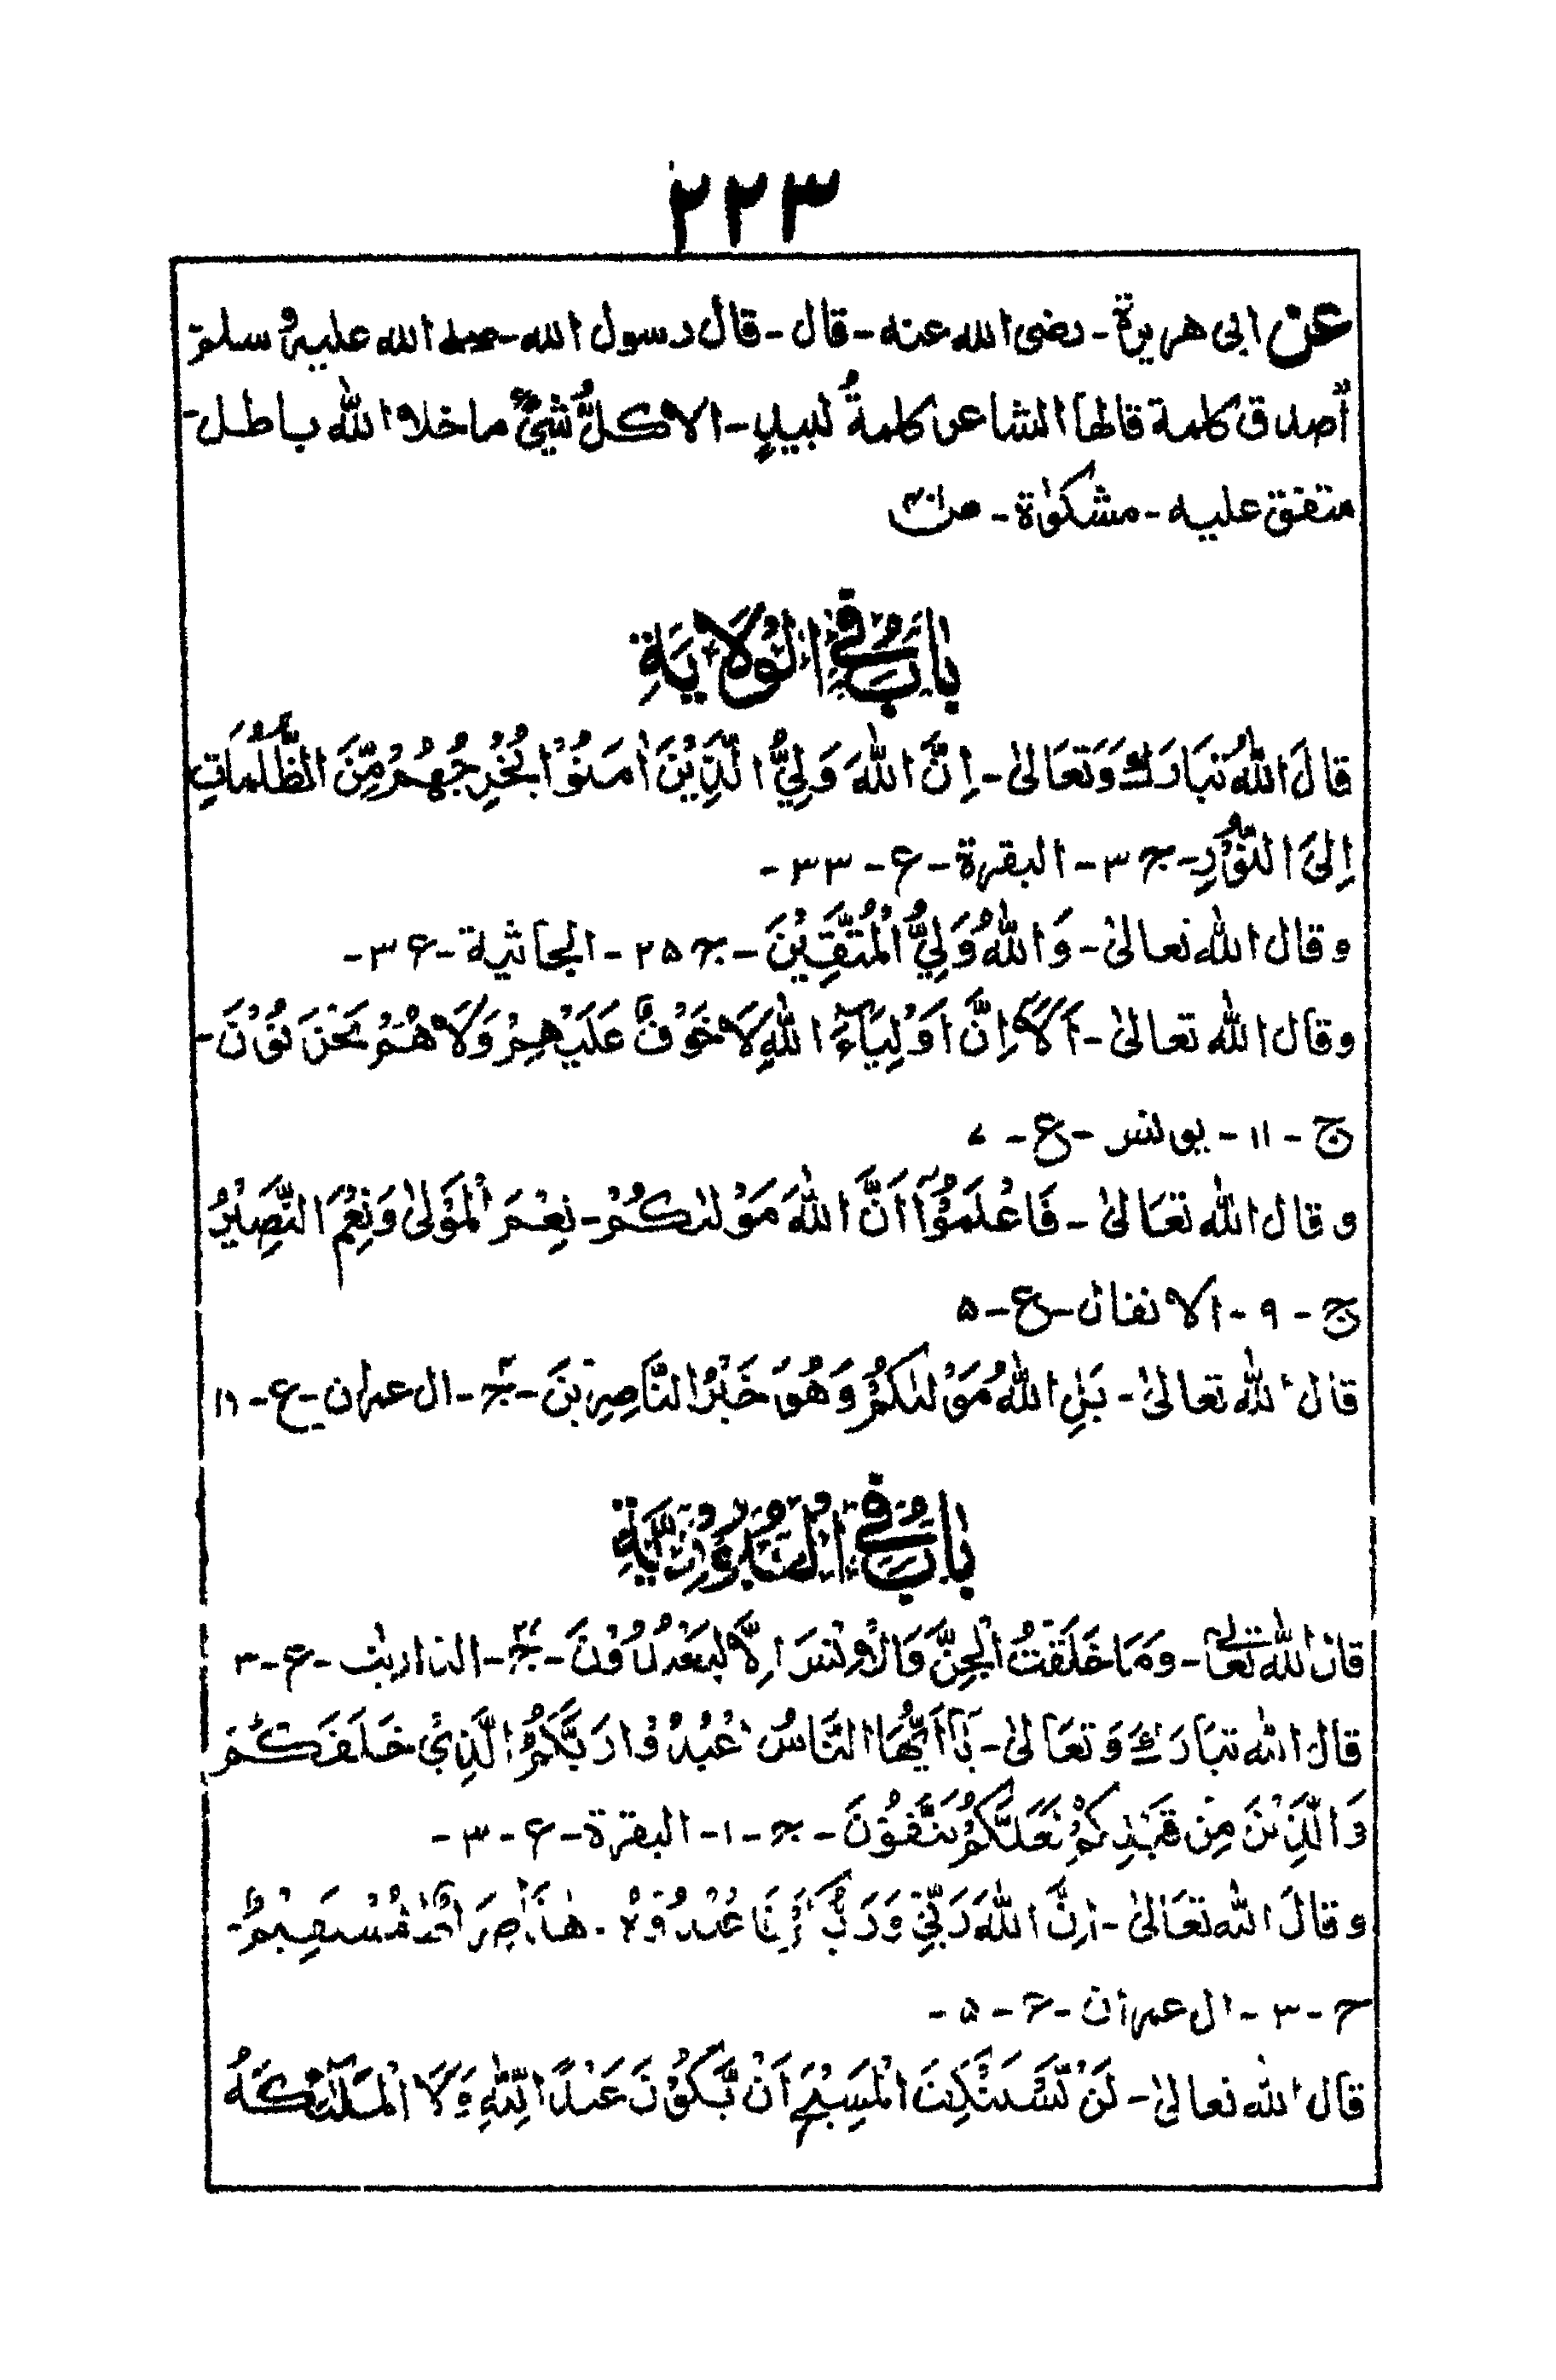 ۲۲۳
عن ابی هریرة - رضی الله عنه - قال - قال رسول الله - صلے الله علیه وسلم
أصدق کلمة قالها الشاعر کلمةُ لبیدٍ - الا کلُّ شیئٍ ما خلا الله باطل -
متفق علیه - مشکوٰة -
بَابٌ فِي الْوَلَايَةِ
قَالَ اللهُ تَبَارَكَ وَتَعَالىٰ - اِنَّ اللهَ وَلِيُّ الَّذِيْنَ اٰمَنُوْا يُخْرِجُهُمْ مِّنَ الظُّلُمَاتِ
اِلَی النُّوْرِ - ج ۳ - البقرة - ع - ۳۳ -
وقال الله تعالیٰ - وَاللهُ وَلِيُّ الْمُتَّقِيْنَ - ج ۲۵ - الجاثية - ع ۳ -
وقال الله تعالیٰ - اَلَآ اِنَّ اَوْلِيَآءَ اللهِ لَا خَوْفٌ عَلَيْهِمْ وَلَا هُمْ يَحْزَنُوْنَ -
ج - ۱۱ - یونس - ع - ۷
وقال الله تعَالیٰ - فَاعْلَمُوْٓا اَنَّ اللهَ مَوْلٰىكُمْ - نِعْمَ الْمَوْلىٰ وَنِعْمَ النَّصِيْرُ
ج - ۹ - الانفال - ع - ۵
قال الله تعالیٰ - بَلِ اللهُ مَوْلٰىكُمْ وَهُوَ خَيْرُ النَّاصِرِيْنَ - ج۴ - ال عمران - ع -
بَابٌ فِي
قال الله تعالیٰ - وَمَا خَلَقْتُ الْجِنَّ وَالْاِنْسَ اِلَّا لِيَعْبُدُوْنَ - ج - الذاریٰت - ع - ۳
قال الله تبارَكَ وَتعَالىٰ - يٰٓاَيُّهَا النَّاسُ اعْبُدُوْا رَبَّكُمُ الَّذِيْ خَلَقَكُمْ
وَالَّذِيْنَ مِنْ قَبْلِكُمْ لَعَلَّكُمْ تَتَّقُوْنَ - ج - ۱ - البقرة - ع - ۳ -
وقالَ الله تعَالیٰ - اِنَّ اللهَ رَبِّيْ وَرَبُّكُمْ فَاعْبُدُوْهُ - هٰذَا صِرَاطٌ مُّسْتَقِيْمٌ -
ج - ۳ - ال عمران - ع - ۵ -
قال الله تعالیٰ - لَنْ يَّسْتَنْكِفَ الْمَسِيْحُ اَنْ يَّكُوْنَ عَبْدًا لِّلّٰهِ وَلَا الْمَلٰٓئِكَةُ